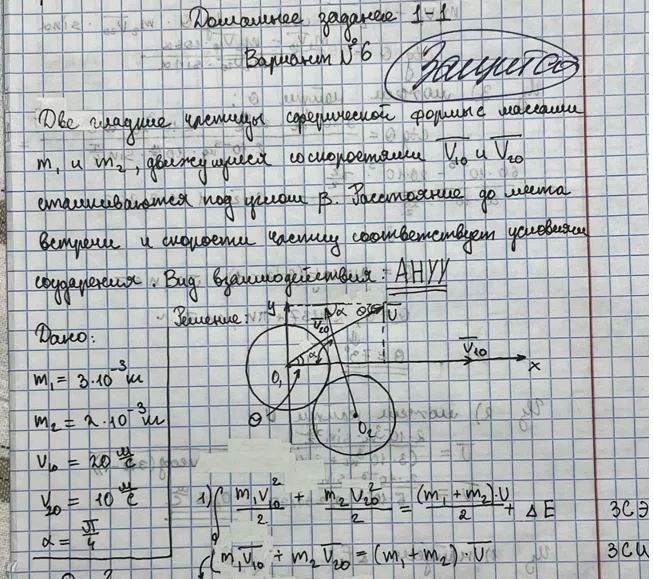 Домашнее задание 1-1
Вариант №6
Защита
Две гладкие частицы сферической формы с массами
m₁ и m₂, движущиеся со скоростями V₁₀ и V₂₀
сталкиваются под углом β. Расстояние до места
встречи и скорости частиц соответствует условиям
соударения. Вид взаимодействия: АНУУ
Дано:
Решение:
y
V₂₀
α
θ
U
O₁
α
V₁₀
x
θ
O₂
m₁ = 3·10⁻³ кг
m₂ = 2·10⁻³ кг
V₁₀ = 20 м/с
V₂₀ = 10 м/с
α = π/4
1) m₁V₁₀²/2 + m₂V₂₀²/2 = (m₁+m₂)·U/2 + ΔE ЗСЭ
m₁V₁₀ + m₂V₂₀ = (m₁+m₂)·U ЗСИ